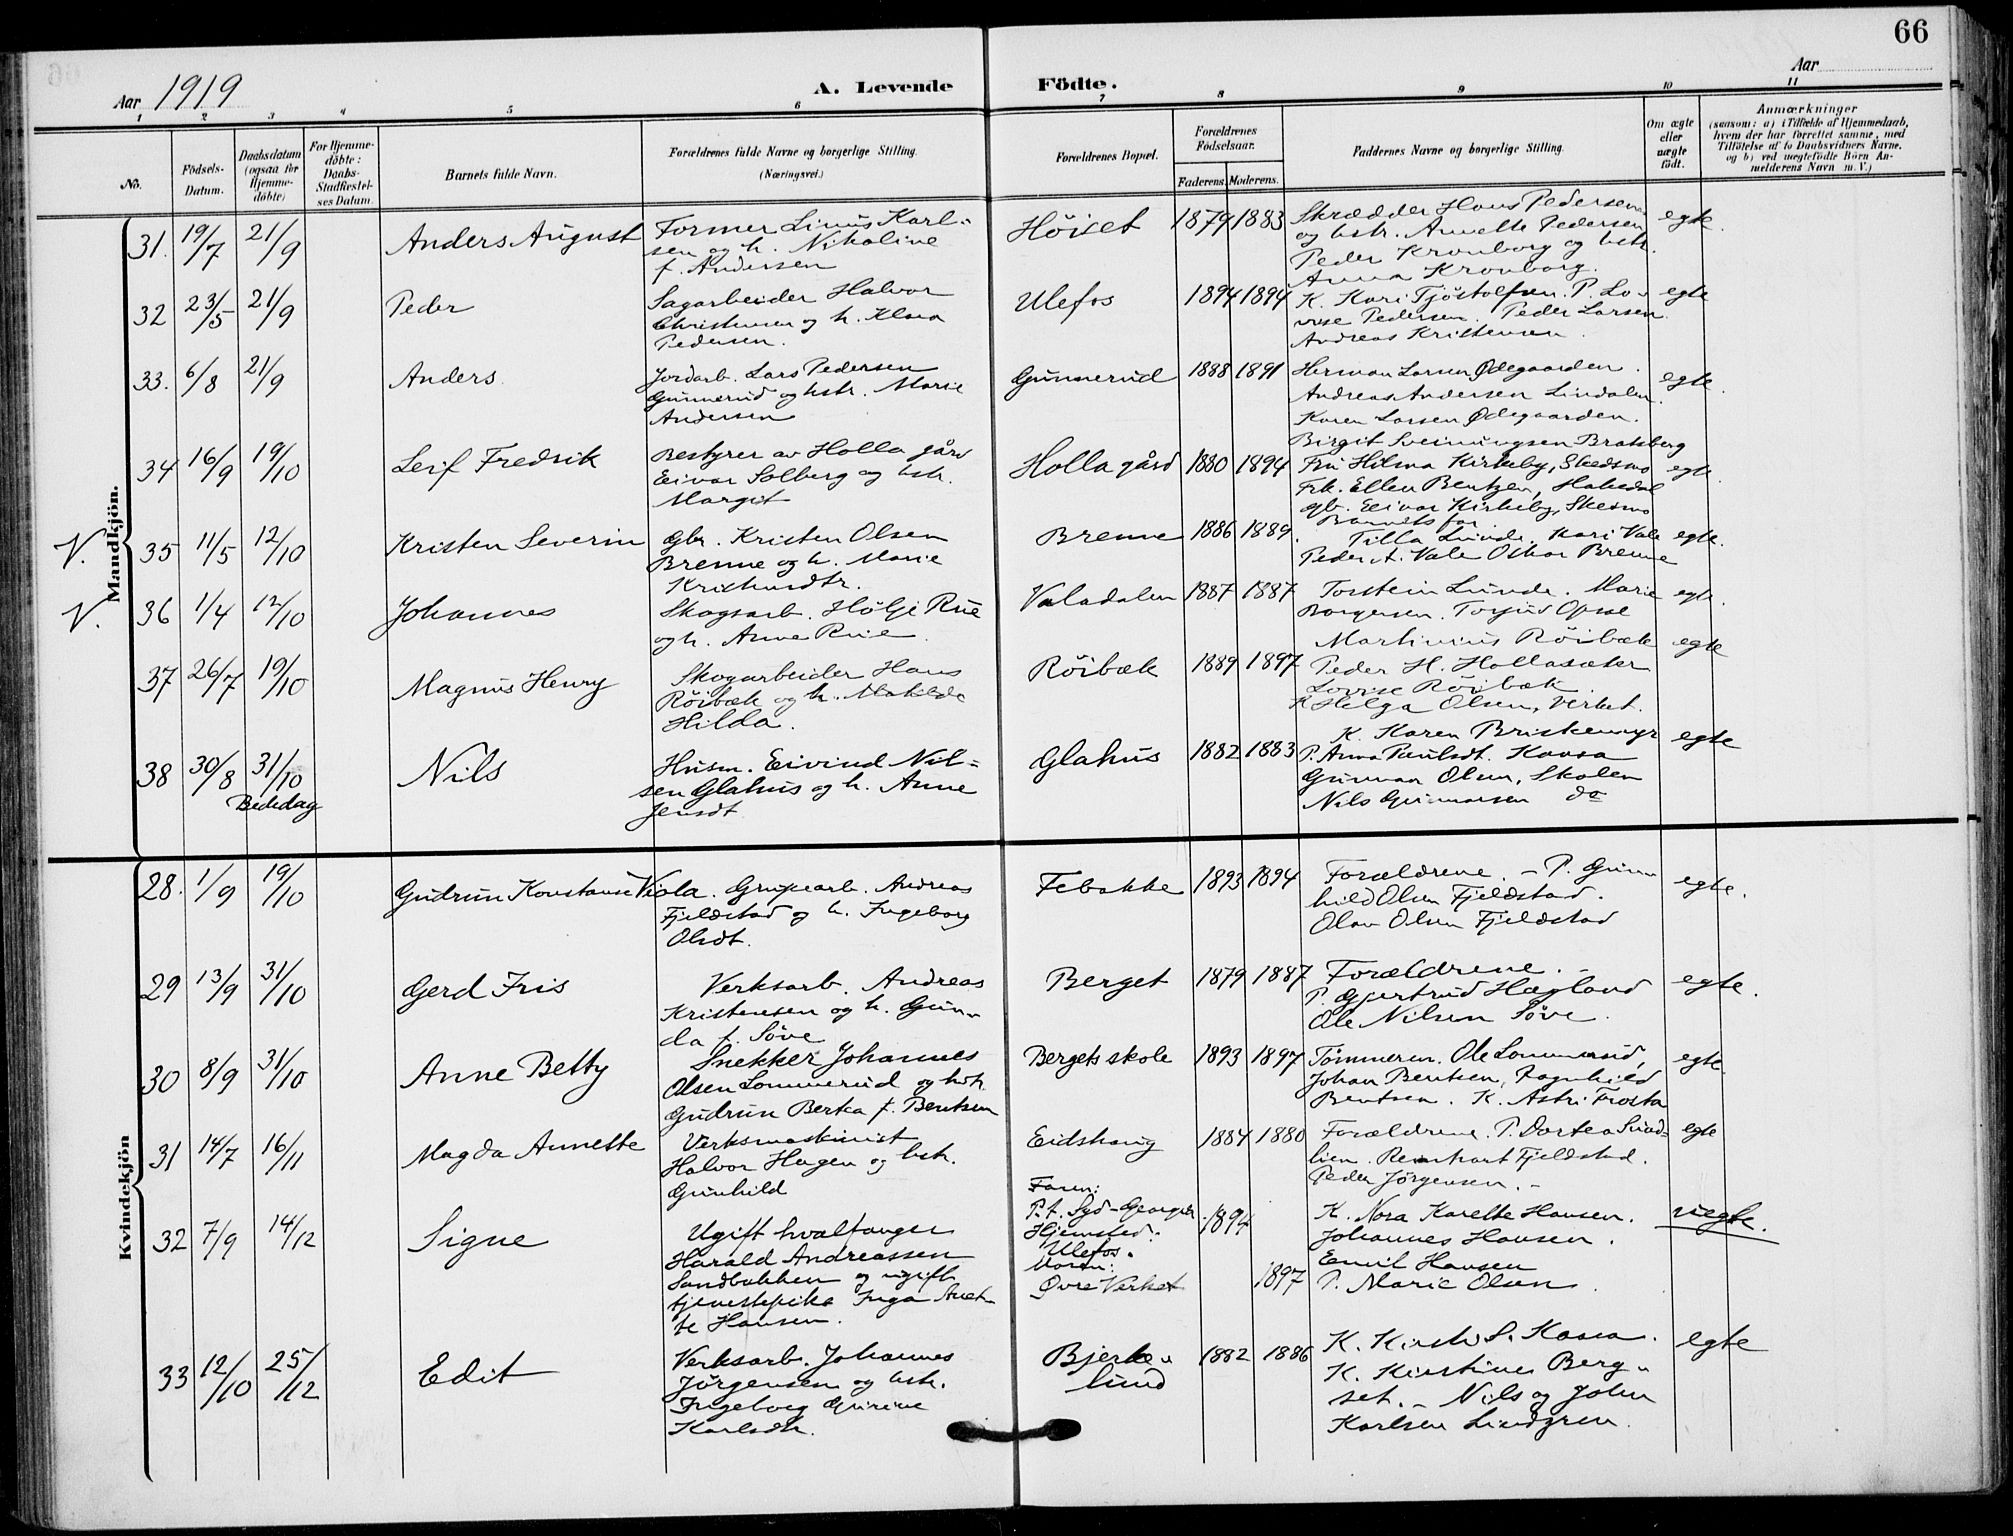 66
Aar 1919
A. Levende
Födte.
Aar
1 2 3 4 5 6 7 8 9 10 11
No.
Födsels-
Datum.
Daabsdatum
(ogsaa for
Hjemme-
döbte)
For Hjemme-
döbte:
Daabs-
Stadfæstel-
ses Datum.
Barnets fulde Navn.
Forældrenes fulde Navne og borgerlige Stilling.
(Næringsvei.)
Forældrenes Bopæl.
Forældrenes
Födselsaar.
Faderens. Moderens.
Faddernes Navne og borgerlige Stilling.
Om ægte
eller
uægte
födt.
Anmærkninger
(saasom: a) i Tilfælde af Hjemmedaab,
hvem der har forrettet samme, med
Tilföielse af to Daabsvidners Navne.
og b) ved uægtefödte Börn An-
melderens Navn m. V.)
Mandkjön.
31. 19/7 21/9 Anders August
Former Linus Karl-
sen og h. Nikoline
f. Andersen
Höiset 1879 1883
Skrædder Hans Pedersen
og hstr. Annette Pedersen
Peder Kronborg og hstr.
Anna Kronborg.
egte.
32 23/5 21/9 Peder
Sagarbeider Halvor
Christensen og h. Klara
Pedersen.
Ulefos 1894 1894
K. Kari Tjöstolfsen. P. Lo-
vise Pedersen. Peder Larsen.
Andreas Kristensen.
egte
33. 6/8 21/9 Anders.
Jordarb. Lars Pedersen
Gunnerud og hstr. Marie
Andersen
Gunnerud 1888 1891
Herman Larsen Ødegaarden.
Andreas Andersen Lindalen.
Karen Larsen Ødegaarden.
Birgit Sveinungsen Bratsberg
egte.
34 16/9 19/10 Leif Fredrik
Bestyrer av Holla gård
Eivar Solberg og hstr.
Margit
Holla gård 1880 1894
Fru Hilma Kirkeby, Skedsmo
Frk. Ellen Bentzen, Hakedal
gb. Eivar Kirkeby, Skesmo
Barnets far
egte.
V. 35 11/5 12/10 Kristen Severin
Gbr. Kristen Olsen
Brenne og h. Marie
Brenne 1886 1889.
Tilla Lunde. Kari Vale
Peder A. Vale Oskar Brenne
egte.
V. 36 1/4 12/10 Johannes
Skogsarb. Hölje Rue
og h. Anne Rue.
Valadalen 1887 1887
Torstein Lunde. Marie
Borgersen. Torjus
egte.
37 26/7 19/10 Magnus Henry
Skogarbeider Hans
Röibæk og h. Matilde
Hilda.
Röibæk 1889 1897
Martinius Röibæk
Peder H. Hollasæter
Lovise Röibæk.
K Helga Olsen, Verket.
egte
38 30/8 31/10 Bededag Nils
Husm. Eivind Nil-
sen Glahus og h. Anne
Jensdt
Glahus 1882 1883
K. Karen Briskemyr
P. Anna Paulsdt. Kaasa
Gunnar Olsen, Skolen
Nils Gunnarsen do
egte
Kvindekjön
28. 1/9 19/10 Gudrun Konstanse Viola.
Grubearb. Andreas
Fjeldstad og h. Ingeborg
Olsdt.
Febakke 1893 1894
Forældrene. - P. Gun-
hild Olsen Fjeldstad.
Olav Olsen Fjeldstad
egte.
29 13/9 31/10 Gerd Iris
Verksarb. Andreas
Kristensen og h. Gun-
da f. Söve
Berget 1879 1887
Forældrene. -
P. Gjertrud Hægland
Ole Nilsen Söve.
egte.
30 8/9 31/10 Anne Betty
Snekker Johannes
Olsen Lommerud og hstr.
Gudrun Berta f. Bentsen
Bergets skole 1893 1897
Tömmerm. Ole Lommerud,
Johan Bentsen, Ragnhild
Bentsen. K. Astri Frosta
egte.
31 14/7 16/11 Magda Annette
Verksmaskinist
Halvor Hagen og hstr.
Gunhild
Eidshaug 1884 1880
Forældrene. P. Dortea
lien. Reinhart Fjeldstad.
Peder Jörgensen. -
egte
32 7/9 14/12 Signe
Ugift hvalfanger
Harald Andreassen
Sandbakken og ugift
tjenestepike Inga Anet-
te Hansen.
Faren:
P.t. Syd-Georgien.
Hjemsted:
Ulefos.
Moren:
Øvre Verket
1894
1897
K. Nora Karette Hansen.
Johannes Hansen.
Emil Hansen
P. Marie Olsen.
uegte.
33 12/10 25/12 Edit
Verksarb. Johannes
Jörgensen og hstr.
Ingeborg Gurine
Karlsdtr.
Bjerke-
lund
1882 1886
K. Kirsti S. Kaasa.
K. Kirstine Berg-
set. - Nils og John
Karlsen Lindgren.
egte